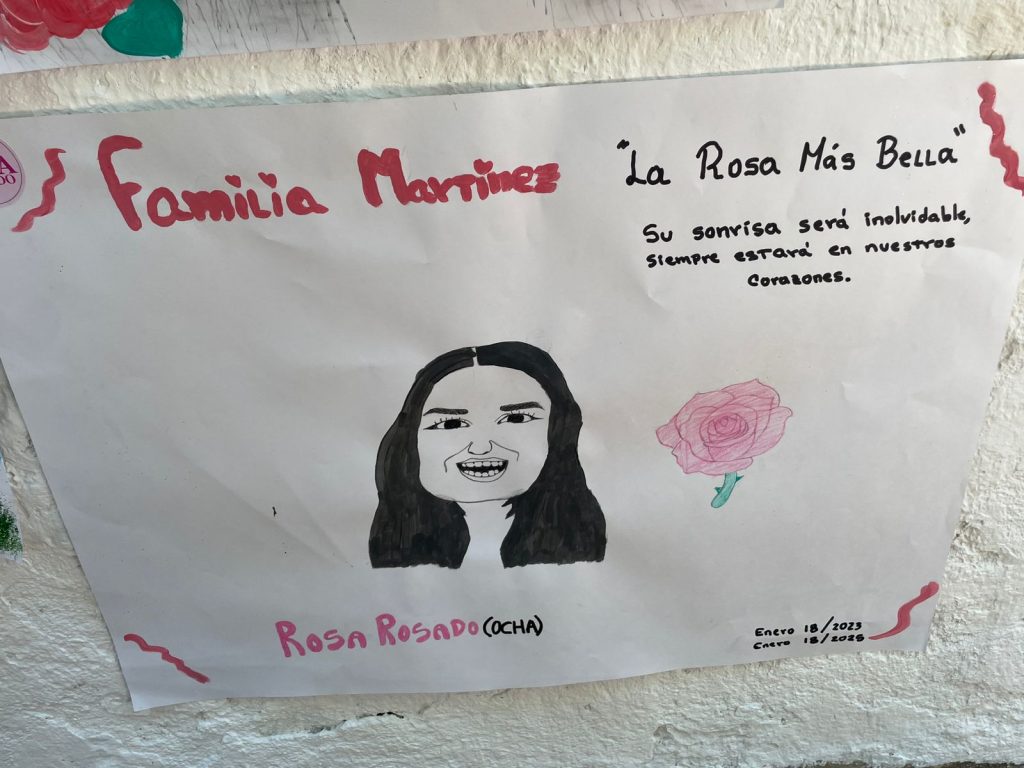 Familia Martinez
"La Rosa Más Bella"
Su sonrisa será inolvidable,
siempre estará en nuestros
corazones.
Rosa Rosado (OCHA)
Enero 18/2023
Enero 18/2025